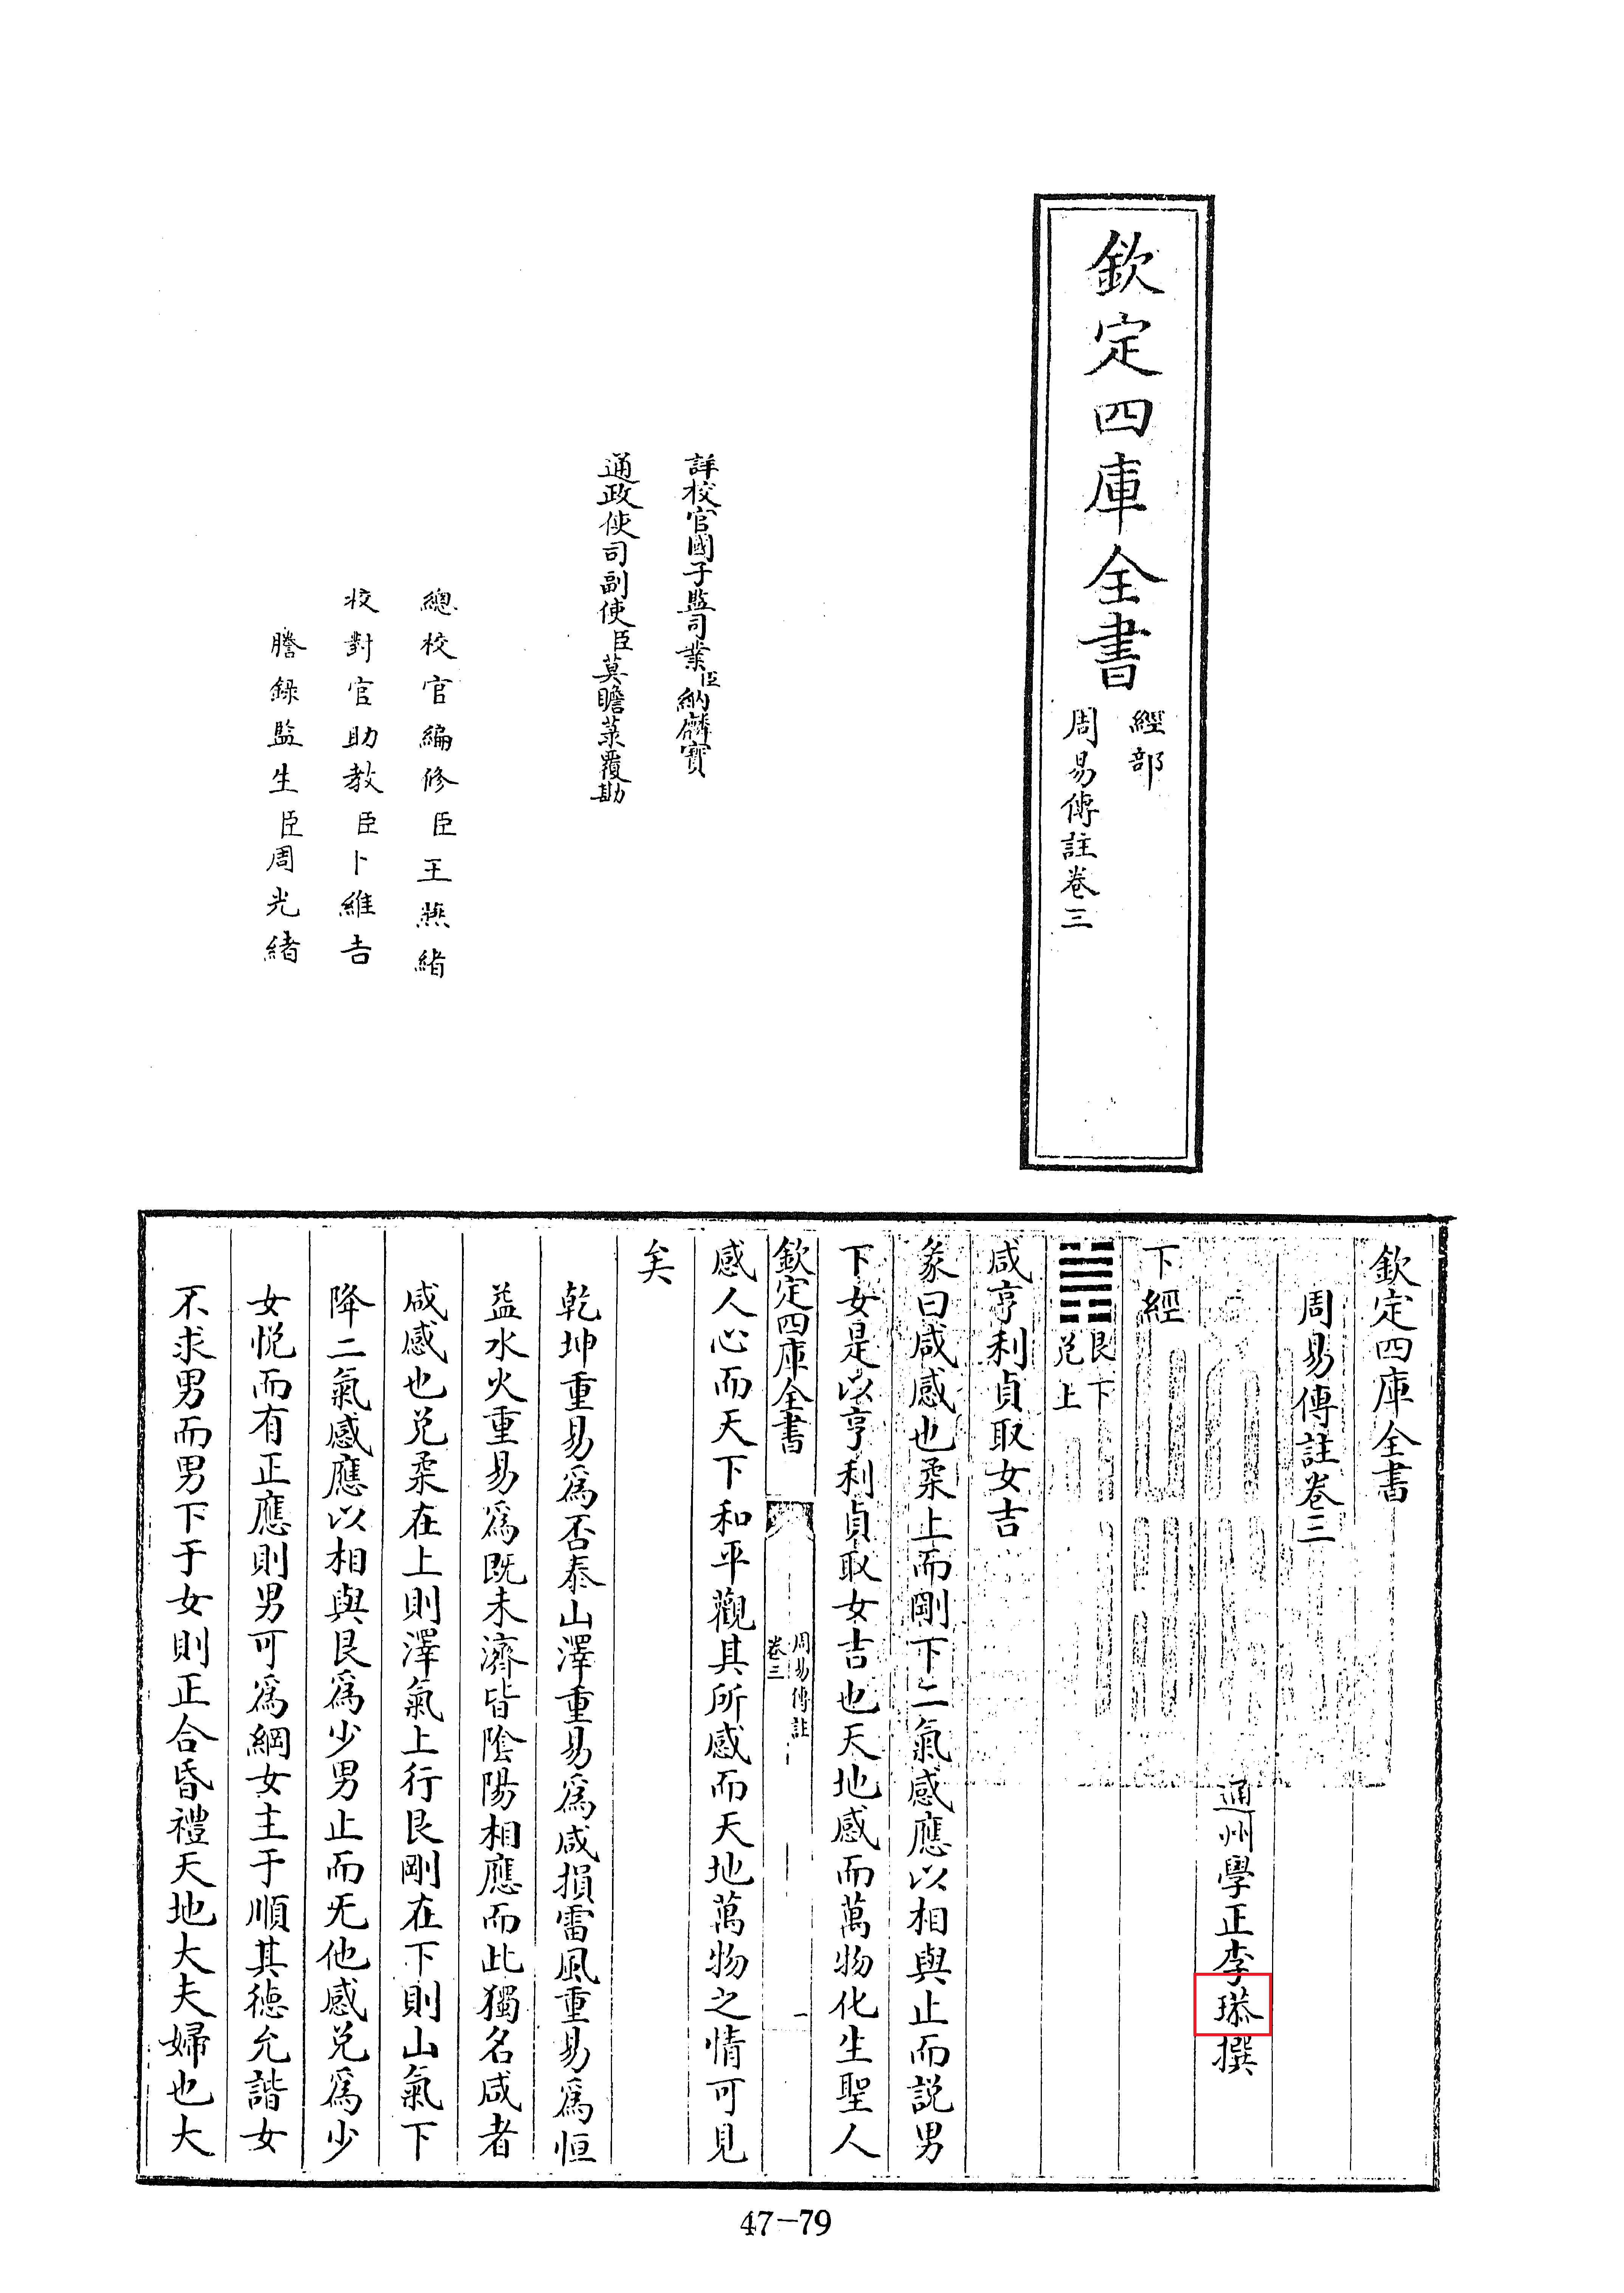 欽定四庫全書
經部
周易傳註卷三
詳校官國子監司業臣納麟寶
通政使司副使臣莫瞻菉覆勘
總校官編修臣王燕緒
校對官助教臣卜維吉
謄錄監生臣周光緒
欽定四庫全書
周易傳註卷三
通州學正李塨撰
下經
䷞艮下兌上
咸亨利貞取女吉
彖曰咸感也柔上而剛下二氣感應以相與止而説男
下女是以亨利貞取女吉也天地感而萬物化生聖人
欽定四庫全書
周易傳註
卷三
一
感人心而天下和平觀其所感而天地萬物之情可見
矣
乾坤重易爲否泰山澤重易爲咸損雷風重易爲恒
益水火重易爲既未濟皆陰陽相應而此獨名咸者
咸感也兌柔在上則澤氣上行艮剛在下則山氣下
降二氣感應以相與艮爲少男止而无他感兌爲少
女悅而有正應則男可爲綱女主于順其德允諧女
不求男而男下于女則正合昏禮天地大夫婦也大
47-79